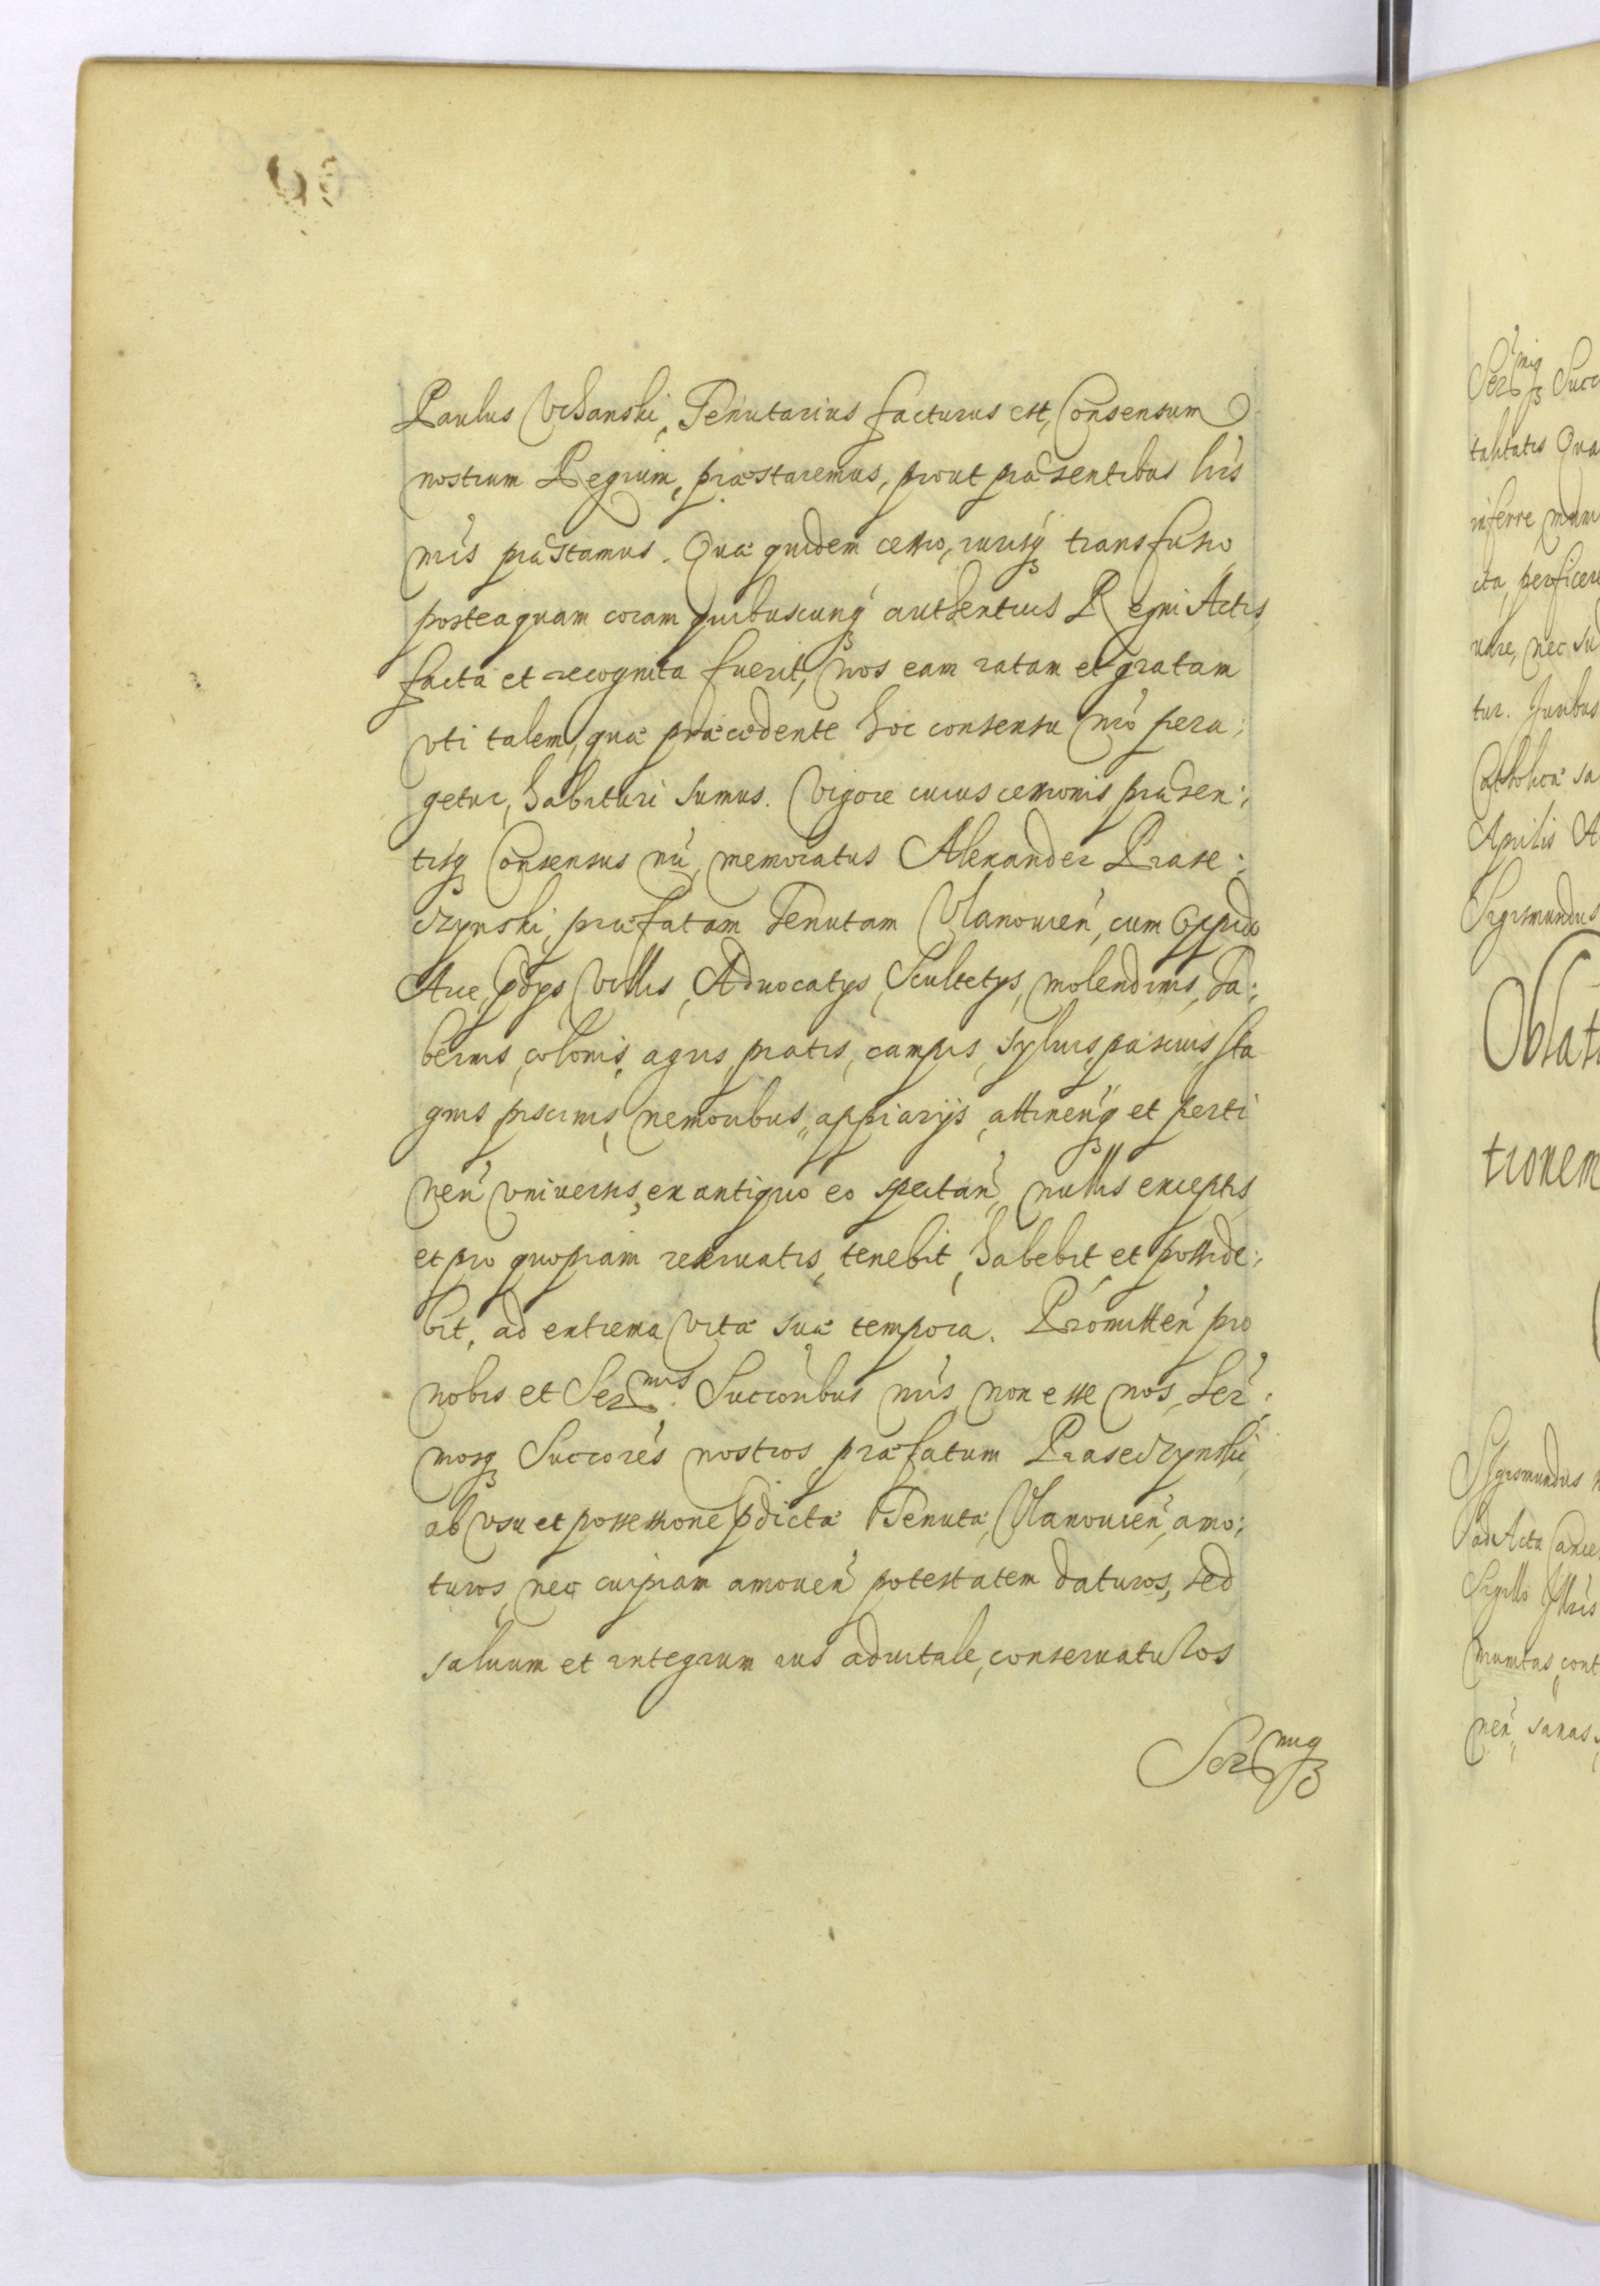 Paulus Vchanski, Tenutarius facturus est, Consensum
nostrum Regium, præstaremus, prout præsentibus lrĩs
nrĩs præstamus. Quæ quidem cessio, iurisq₃ transfusio,
posteaquam coram quibuscunq₃ authenticis Regni Actis,
facta et recognita fuerit, nos eam ratam et gratam
vti talem, quæ præcedente hoc consensu nrõ pera:
getur, habituri sumus. Vigore cuius cessionis præsen:
tisq₃ Consensus nrĩ, memoratus Alexander Prase:
dzynski, præfatam Tenutam Vlanouien̄, cum Oppido
Arce, p̱dÿs Villis, Aduocatÿs, Scultetÿs, molendinis, Ta:
bernis, colonis, agris, pratis, campis, syluis, pascuis, sta
gnis piscinis, nemoribus, appiarÿs, attinen̄q₃ et perti
nen̄ vniuersis, ex antiquo eo spectan̄, nullis exceptis
et pro quopiam reseruatis, tenebit, habebit et posside:
bit, ad extrema vitæ suæ tempora. Promitten̄ pro
nobis et Ser^mis. Succorĩbus nrĩs, non esse nos, Ser̄:
mosq₃ Successorēs nostros, præfatum Prasedzynski,
ab vsu et possessione p̱dictæ Tenutæ, Vlanouien̄, amo:
turos, nec cuipiam amouen̄ potestatem daturos, sed
saluum et integrum ius aduitale, conseruaturos
Ser^miq₃
Ser^misq₃ Succ
talitatis Qua
inferre, mani
cta, perficere
uare, nec su
tur. Juribus
Catholicæ sa
Aprilis A
Sigismundus
Oblat
tionem
Sigismundus
ad Acta Cance
Sigillo Illrĩs
munitas, cont
nen̄, sanas,